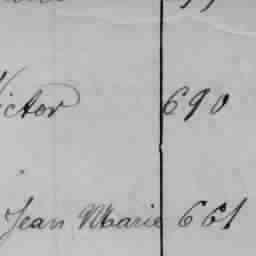 Victor 690
Jean Marie 661